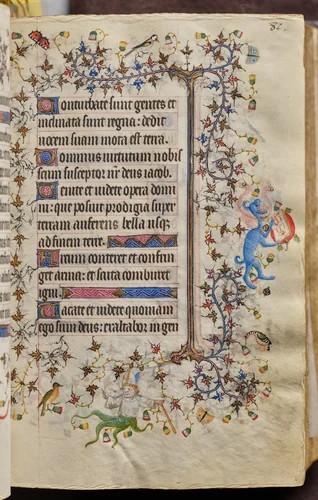 82.
Conturbate sunt gentes et
inclinata sunt regna: dedit
uocem suam mota est terra.
Dominus uirtutum nobis
cum susceptor nr̄ deus iacob.
Uenite et uidete opera domi
ni: que posuit prodigia super
terram auferens bella usq3
ad finem terre.
Arcum conteret et confrin
get arma: et scuta comburet
igni.
Uacate et uidete quoniam
ego sum deus: exaltabo: in gen